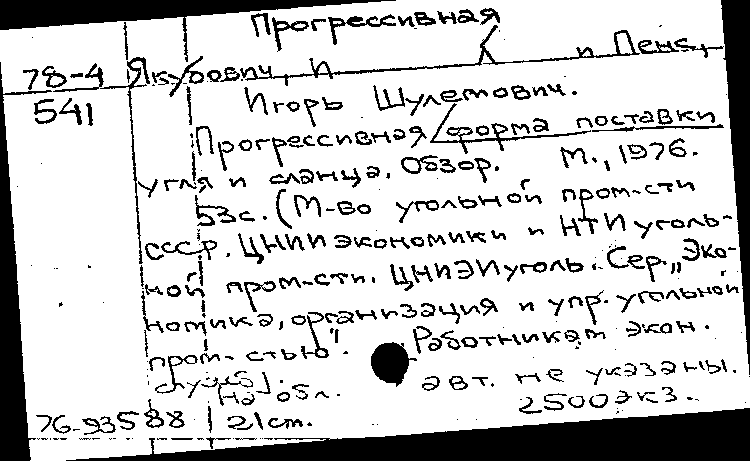 Прогрессивная
78-4 Якубович, И и Пенс,
541 Игорь Шулемович.
Прогрессивная / форма поставки
угля и сланца. Обзор. М., 1976.
53с. (М-во угольной пром-сти
СССР. ЦНИИ экономики и НТИ уголь-
ной пром-сти. ЦНИЭИуголь. Сер. „Эко-
номика, организация и упр. угольной
пром-стью". Работникам экон.
служб). авт. не указаны.
На обл.
76-93588 21 cm. 2500экз.